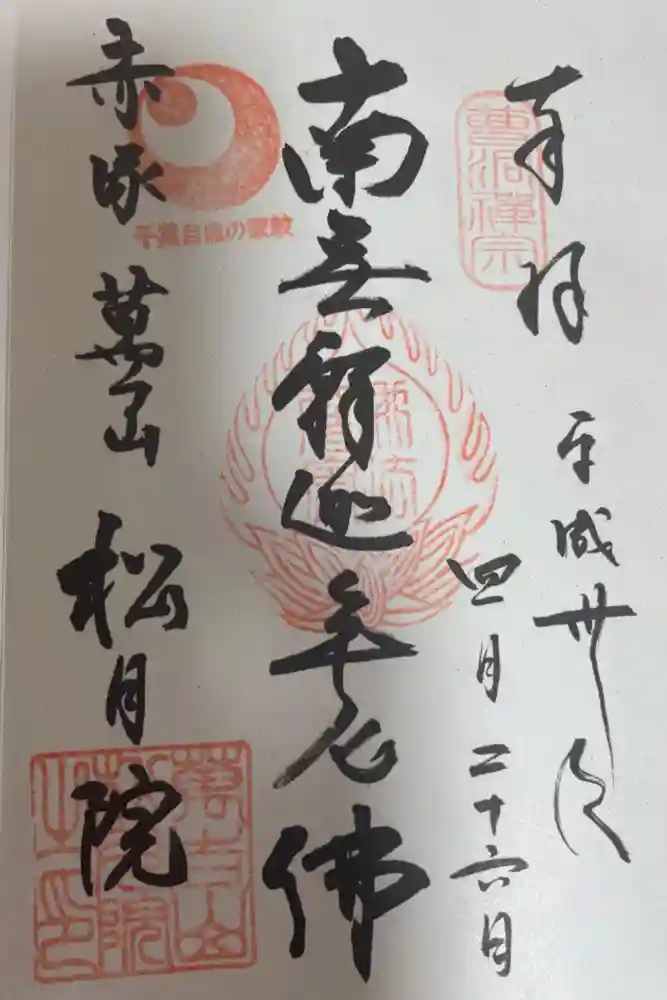 奉拝
曹洞禪宗
平成卅年
四月二十六日
南無釋迦牟尼佛
千葉自胤の家紋
赤塚 萬吉山 松月院
萬吉山
松月院
之印